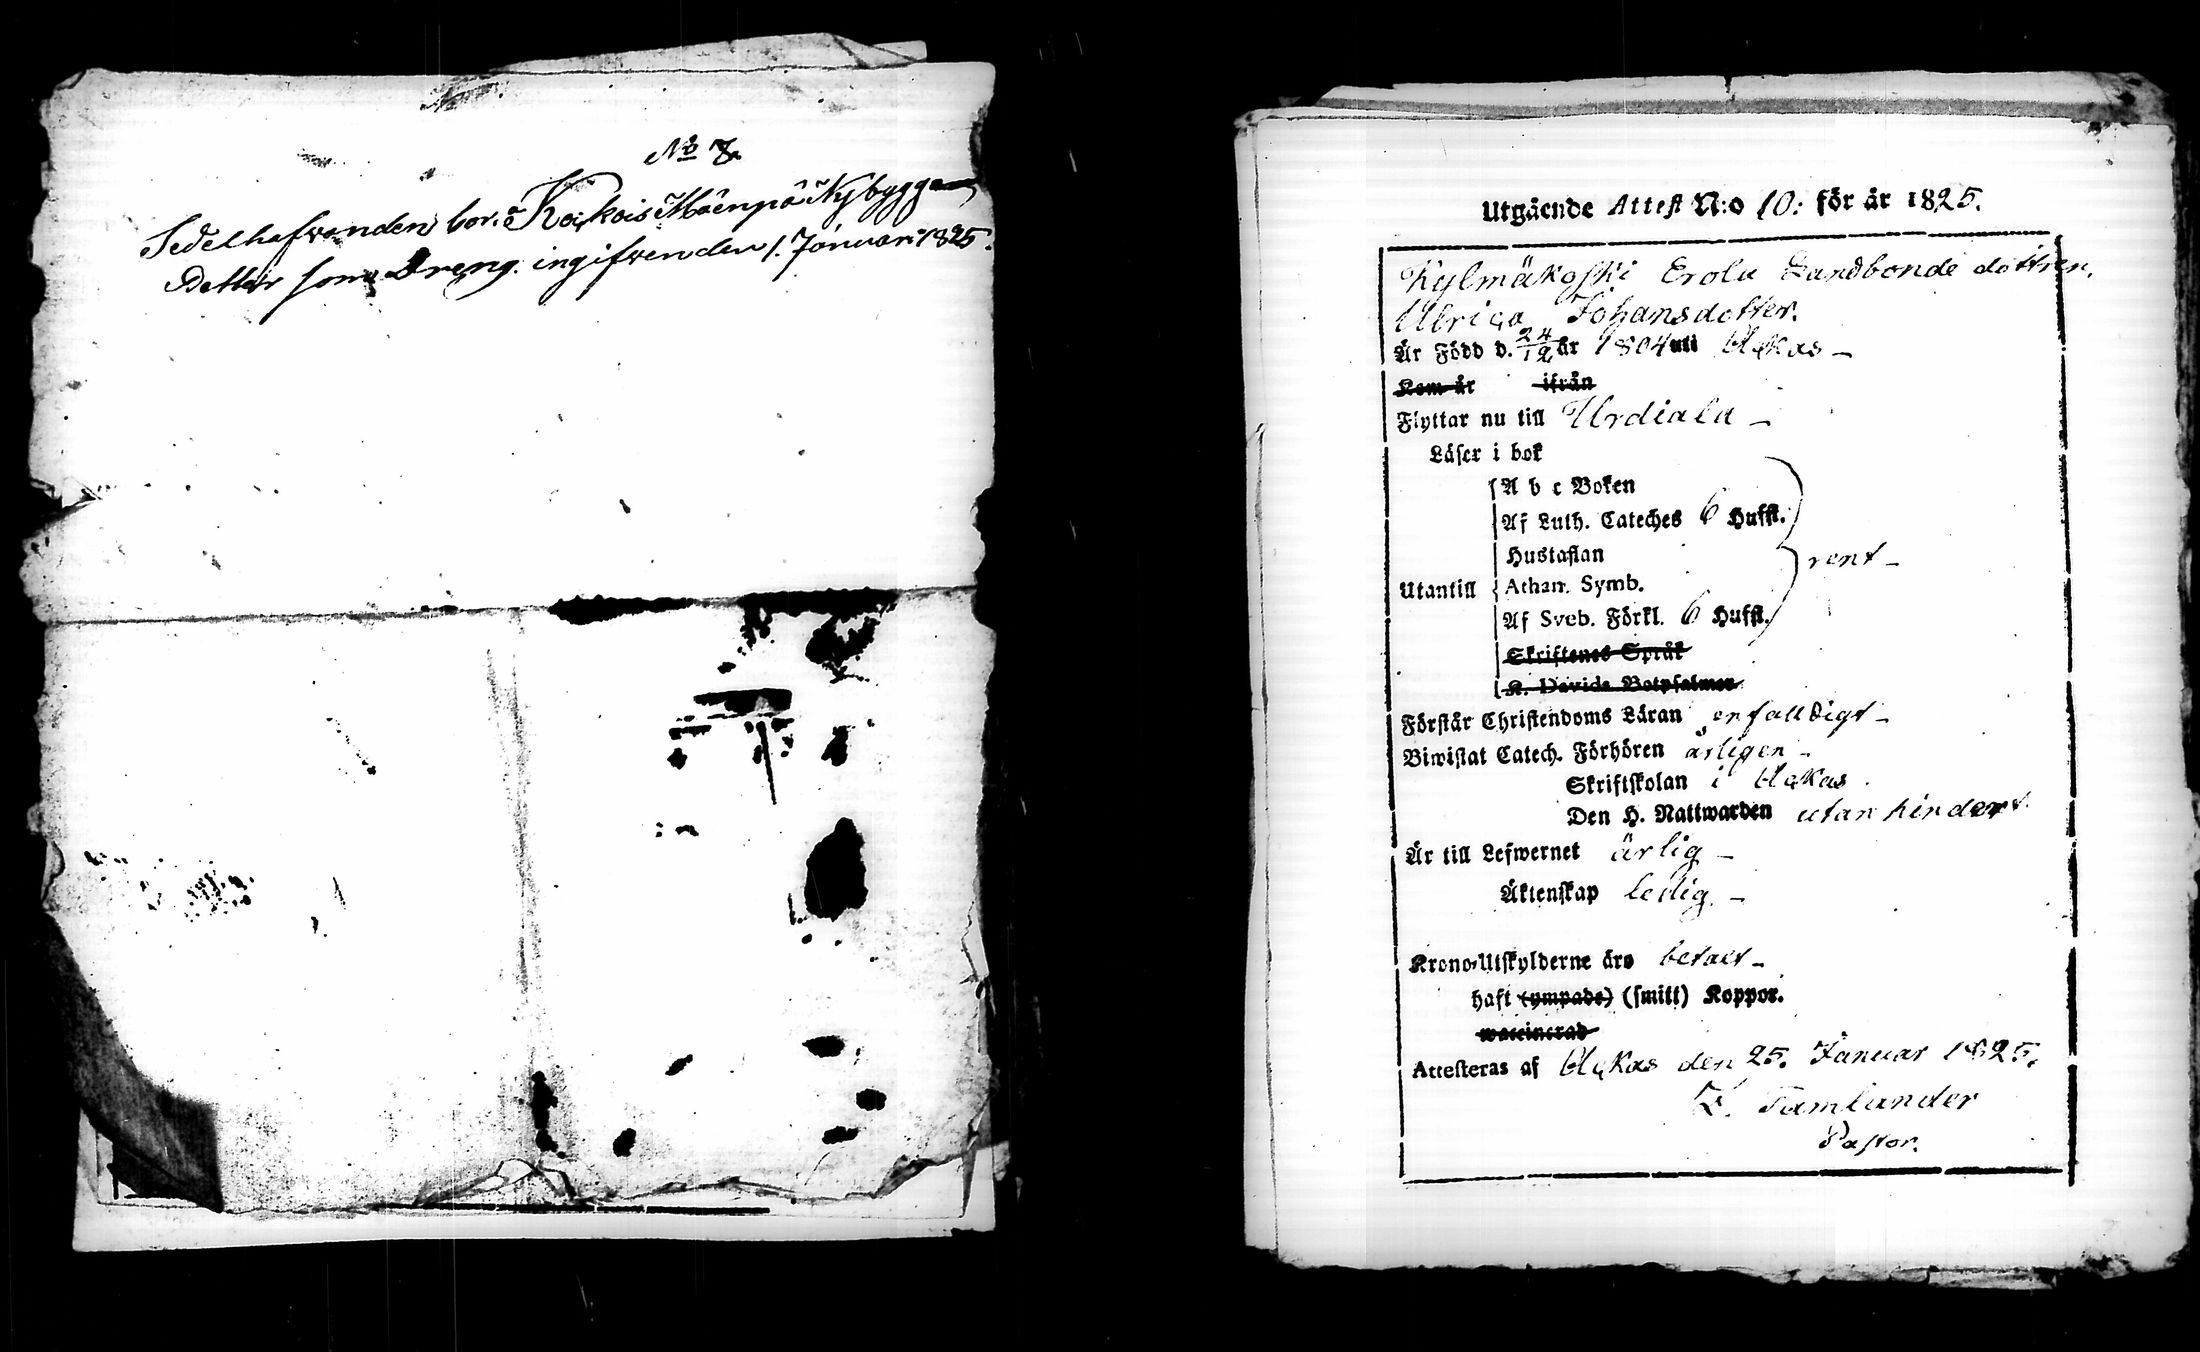 No 7.
Sedelhafvanden bor. å Koikois Mäenpä Nybyggan
Detter som Dreng. ingifven den 1. Januari 1825.
Utgående Attest N:o 10: för år 1825.
Kylmäkoski Erola Landbonde dottren,
Ulrica Johansdotter.
Är Född d. 24/12 år 1804 uti Akas –
Kom år ifrån
Flyttar nu till Urdiala –
Läser i bok
A b c Boken
Af Luth. Cateches 6 Huffst.
Hustaflan
rent –
Utantill
Athan. Symb.
Af Sveb. Förkl. 6 Huffst.
Skriftenes Språk
K. Davids Botpsalmer
Förstår Christendoms Läran enfalldigt –
Biwistat Catech. Förhören årligen –
Skriftskolan i Akas.
Den H. Nattwarden utan hinder
Är till Lefwernet ärlig –
Äktenskap ledig. –
Krono-Utskylderne äro betalt –
haft (ympade) (smitt) Koppor.
waccinerad
Attesteras af Akas den 25. Januar 1825.
Tamlander
Pastor.